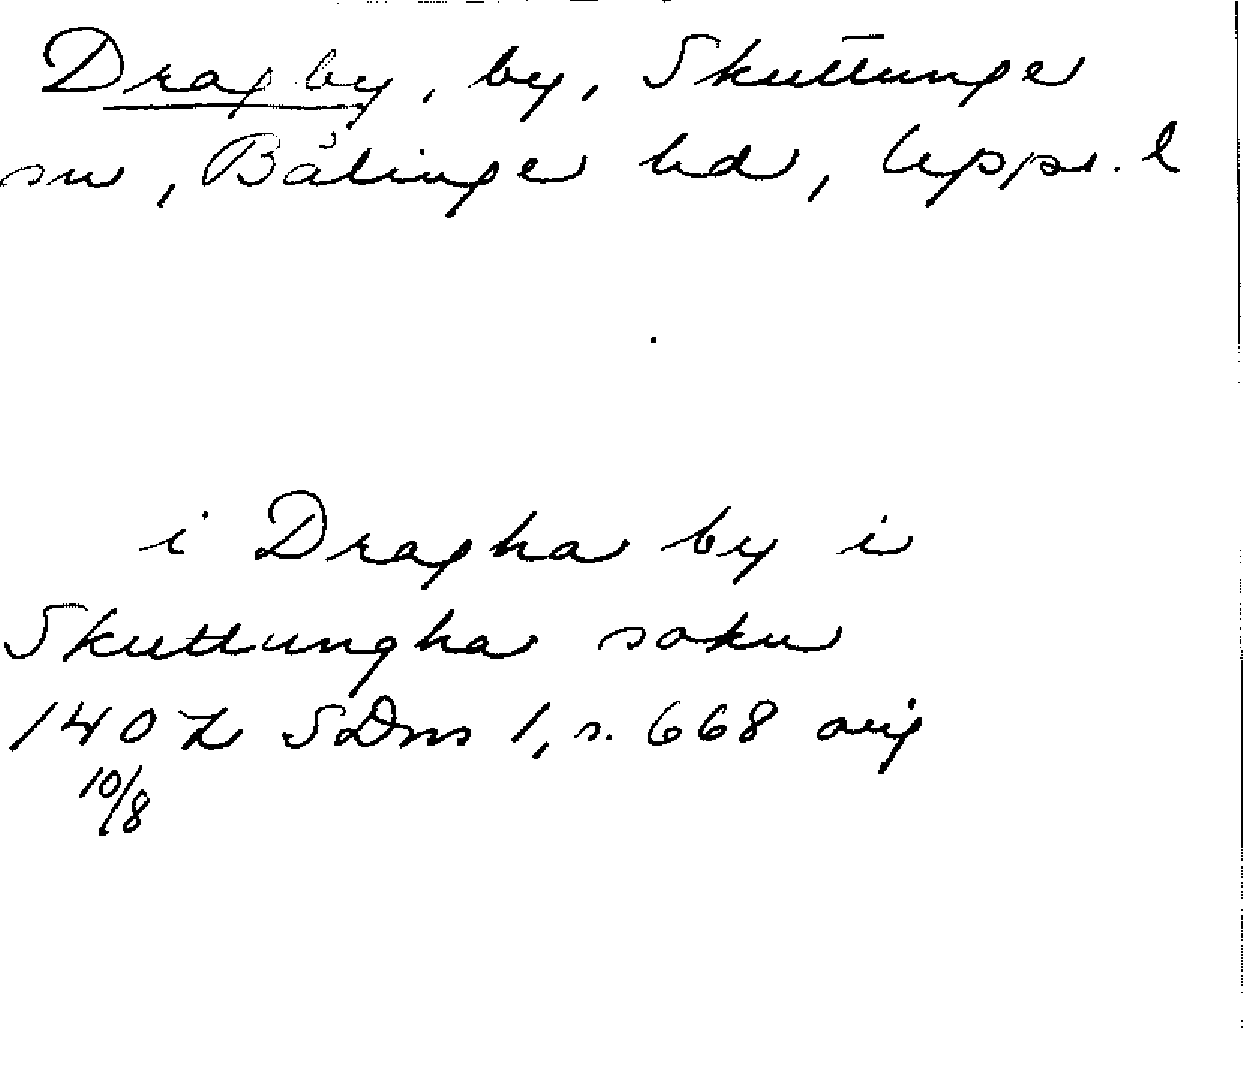 Dragby, by, Skuttunge
sn, Bälinge hd, Uppl. l
i Dragha by i
Skuttungha sokn
1407 SDns 1, s. 668 orig
10/8